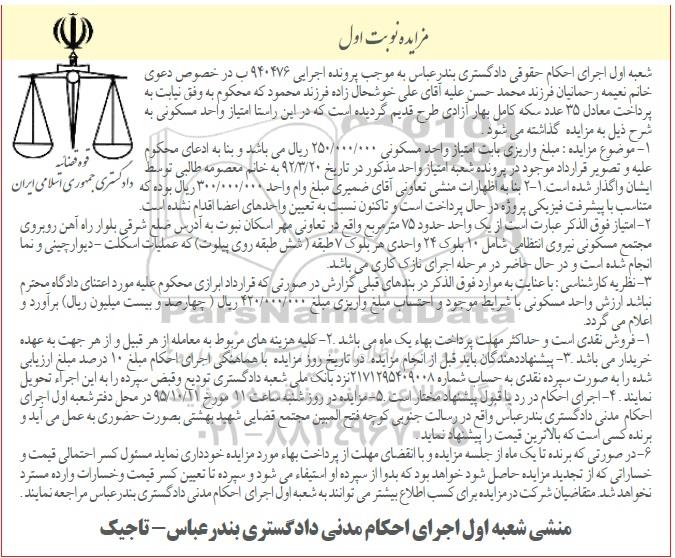 مزایده نوبت اول
قوه قضائیه
دادگستری جمهوری اسلامی ایران
شعبه اول اجرای احکام حقوقی دادگستری بندرعباس به موجب پرونده اجرایی ۹۴۰۴۷۶ ب در خصوص دعوی
خانم نعیمه رحمانیان فرزند محمد حسن علیه آقای علی خوشحال زاده فرزند محمود که محکوم به وفق نیابت به
پرداخت معادل ۳۵ عدد سکه کامل بهار آزادی طرح قدیم گردیده است که در این راستا امتیاز واحد مسکونی به
شرح ذیل به مزایده گذاشته می شود.
۱- موضوع مزایده : مبلغ واریزی بابت امتیاز واحد مسکونی ۲۵۰/۰۰۰/۰۰۰ ریال می باشد و بنا به ادعای محکوم
علیه و تصویر قرارداد موجود در پرونده شعبه امتیاز واحد مذکور در تاریخ ۹۲/۳/۲۰ به خانم معصومه طالبی توسط
ایشان واگذار شده است.۱-۲ بنا به اظهارات منشی تعاونی آقای ضمیری مبلغ وام واحد ۳۰۰/۰۰۰/۰۰۰ ریال بوده که
متناسب با پیشرفت فیزیکی پروژه در حال پرداخت است و تاکنون نسبت به تعیین واحدهای اعضا اقدام نشده است.
۲- امتیاز فوق الذکر عبارت است از یک واحد حدود ۷۵ مترمربع واقع در تعاونی مهر اسکان نبوت به آدرس ضلع شرقی بلوار راه آهن روبروی
مجتمع مسکونی نیروی انتظامی شامل ۱۰ بلوک ۲۴ واحدی هر بلوک ۷طبقه (شش طبقه روی پیلوت) که عملیات اسکلت - دیوارچینی و نما
انجام شده است و در حال حاضر در مرحله اجرای نازک کاری می باشد.
۳- نظریه کارشناسی : با عنایت به موارد فوق الذکر در بندهای قبلی گزارش در صورتی که قرارداد ابرازی محکوم علیه مورد اعتنای دادگاه محترم
نباشد ارزش واحد مسکونی با شرایط موجود و احتساب مبلغ واریزی مبلغ ۴۲۰/۰۰۰/۰۰۰ ریال ( چهارصد و بیست میلیون ریال) برآورد و
اعلام می گردد.
۱- فروش نقدی است و حداکثر مهلت پرداخت بهاء یک ماه می باشد .۲- کلیه هزینه های مربوط به معامله از هر قبیل و از هر جهت به عهده
خریدار می باشد .۳- پیشنهاددهندگان باید قبل از انجام مزایده در تاریخ روز مزایده با هماهنگی اجرای احکام مبلغ ۱۰ درصد مبلغ ارزیابی
شده را به صورت سپرده نقدی به حساب شماره ۲۱۷۱۲۹۵۴۰۹۰۰۸نزد بانک ملی شعبه دادگستری تودیع و قبض سپرده را به این اجراء تحویل
نمایند .۴- اجرای احکام در رد یا قبول پیشنهاد مختار است .۵- مزایده در روز شنبه ساعت ۱۱ مورخ ۹۵/۱۰/۱۱ در محل دفترشعبه اول اجرای
احکام مدنی دادگستری بندرعباس واقع در رسالت جنوبی کوچه فتح المبین مجتمع قضایی شهید بهشتی بصورت حضوری به عمل می آید و
برنده کسی است که بالاترین قیمت را پیشنهاد نماید.
۶- در صورتی که برنده تا یک ماه از جلسه مزایده و با انقضای مهلت از پرداخت بهاء مورد مزایده خودداری نماید مسئول کسر احتمالی قیمت و
خساراتی که از تجدید مزایده حاصل شود خواهد بود که بدوا از سپرده او استیفاء می شود و سپرده تا تعیین کسر قیمت وخسارات وارده مسترد
نخواهد شد. متقاضیان شرکت در مزایده برای کسب اطلاع بیشتر می توانند به شعبه اول اجرای احکام مدنی دادگستری بندرعباس مراجعه نمایند .
منشی شعبه اول اجرای احکام مدنی دادگستری بندرعباس - تاجیک
ParsNamadData
۰۲۱-۸۸۳۴۹۶۷۰-۵